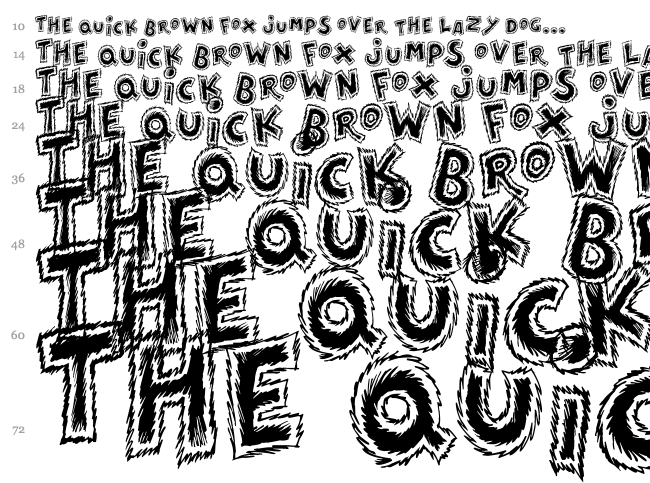 10 THE QUiCK BROWN FOX jUMPS OVER THE LAZY DOG...
14 THE QUiCK BROWN FOX jUMPS OVER THE LA
18 THE QUiCK BROWN FOX jUMPS OVE
24 THE QUiCK BROWN FOX jU
36 THE QUiCK BROWN
48 THE QUiCK B
60 THE QUiCK
72 THE QUiC